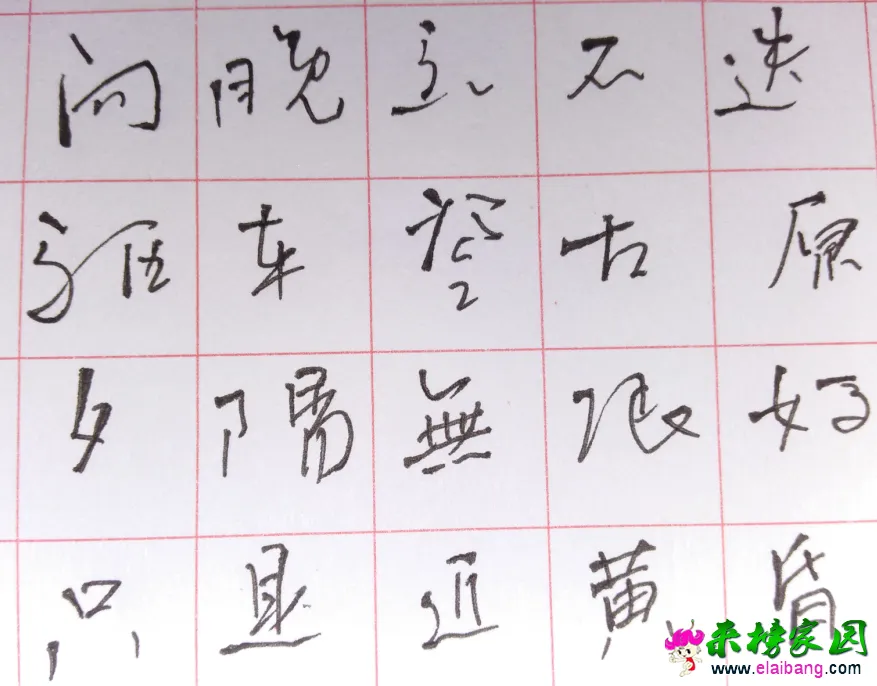 向晚意不适
驱车登古原
夕陽無限好
只是近黄昏
来榜家园
www.elaibang.com